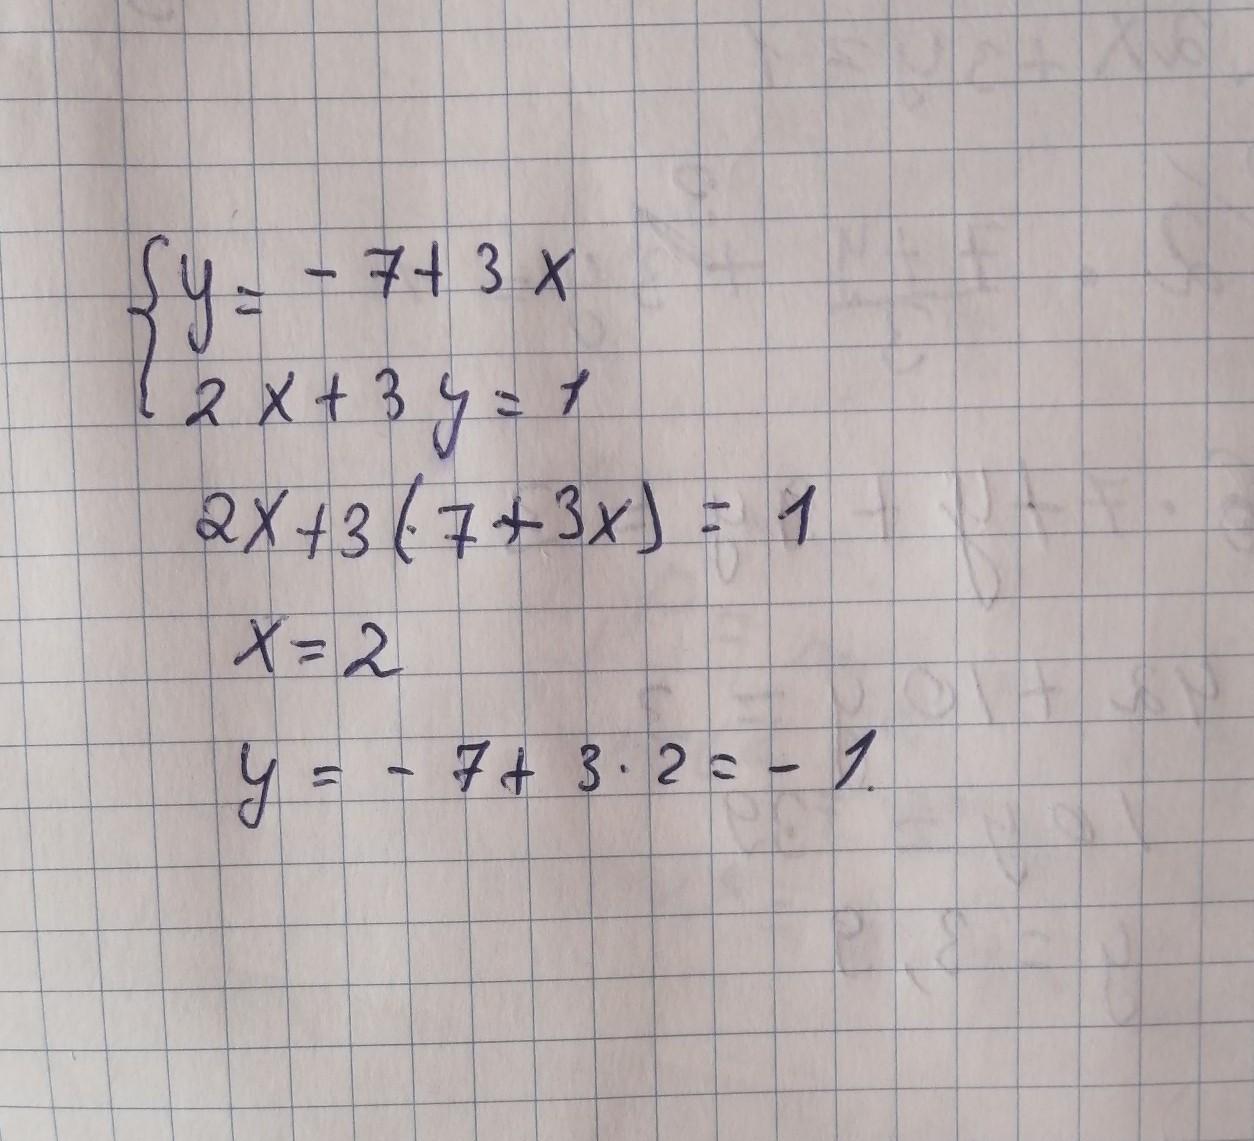 {y = - 7 + 3 x
2 x + 3 y = 1
2x + 3 (-7 + 3x) = 1
x = 2
y = - 7 + 3 · 2 = - 1.